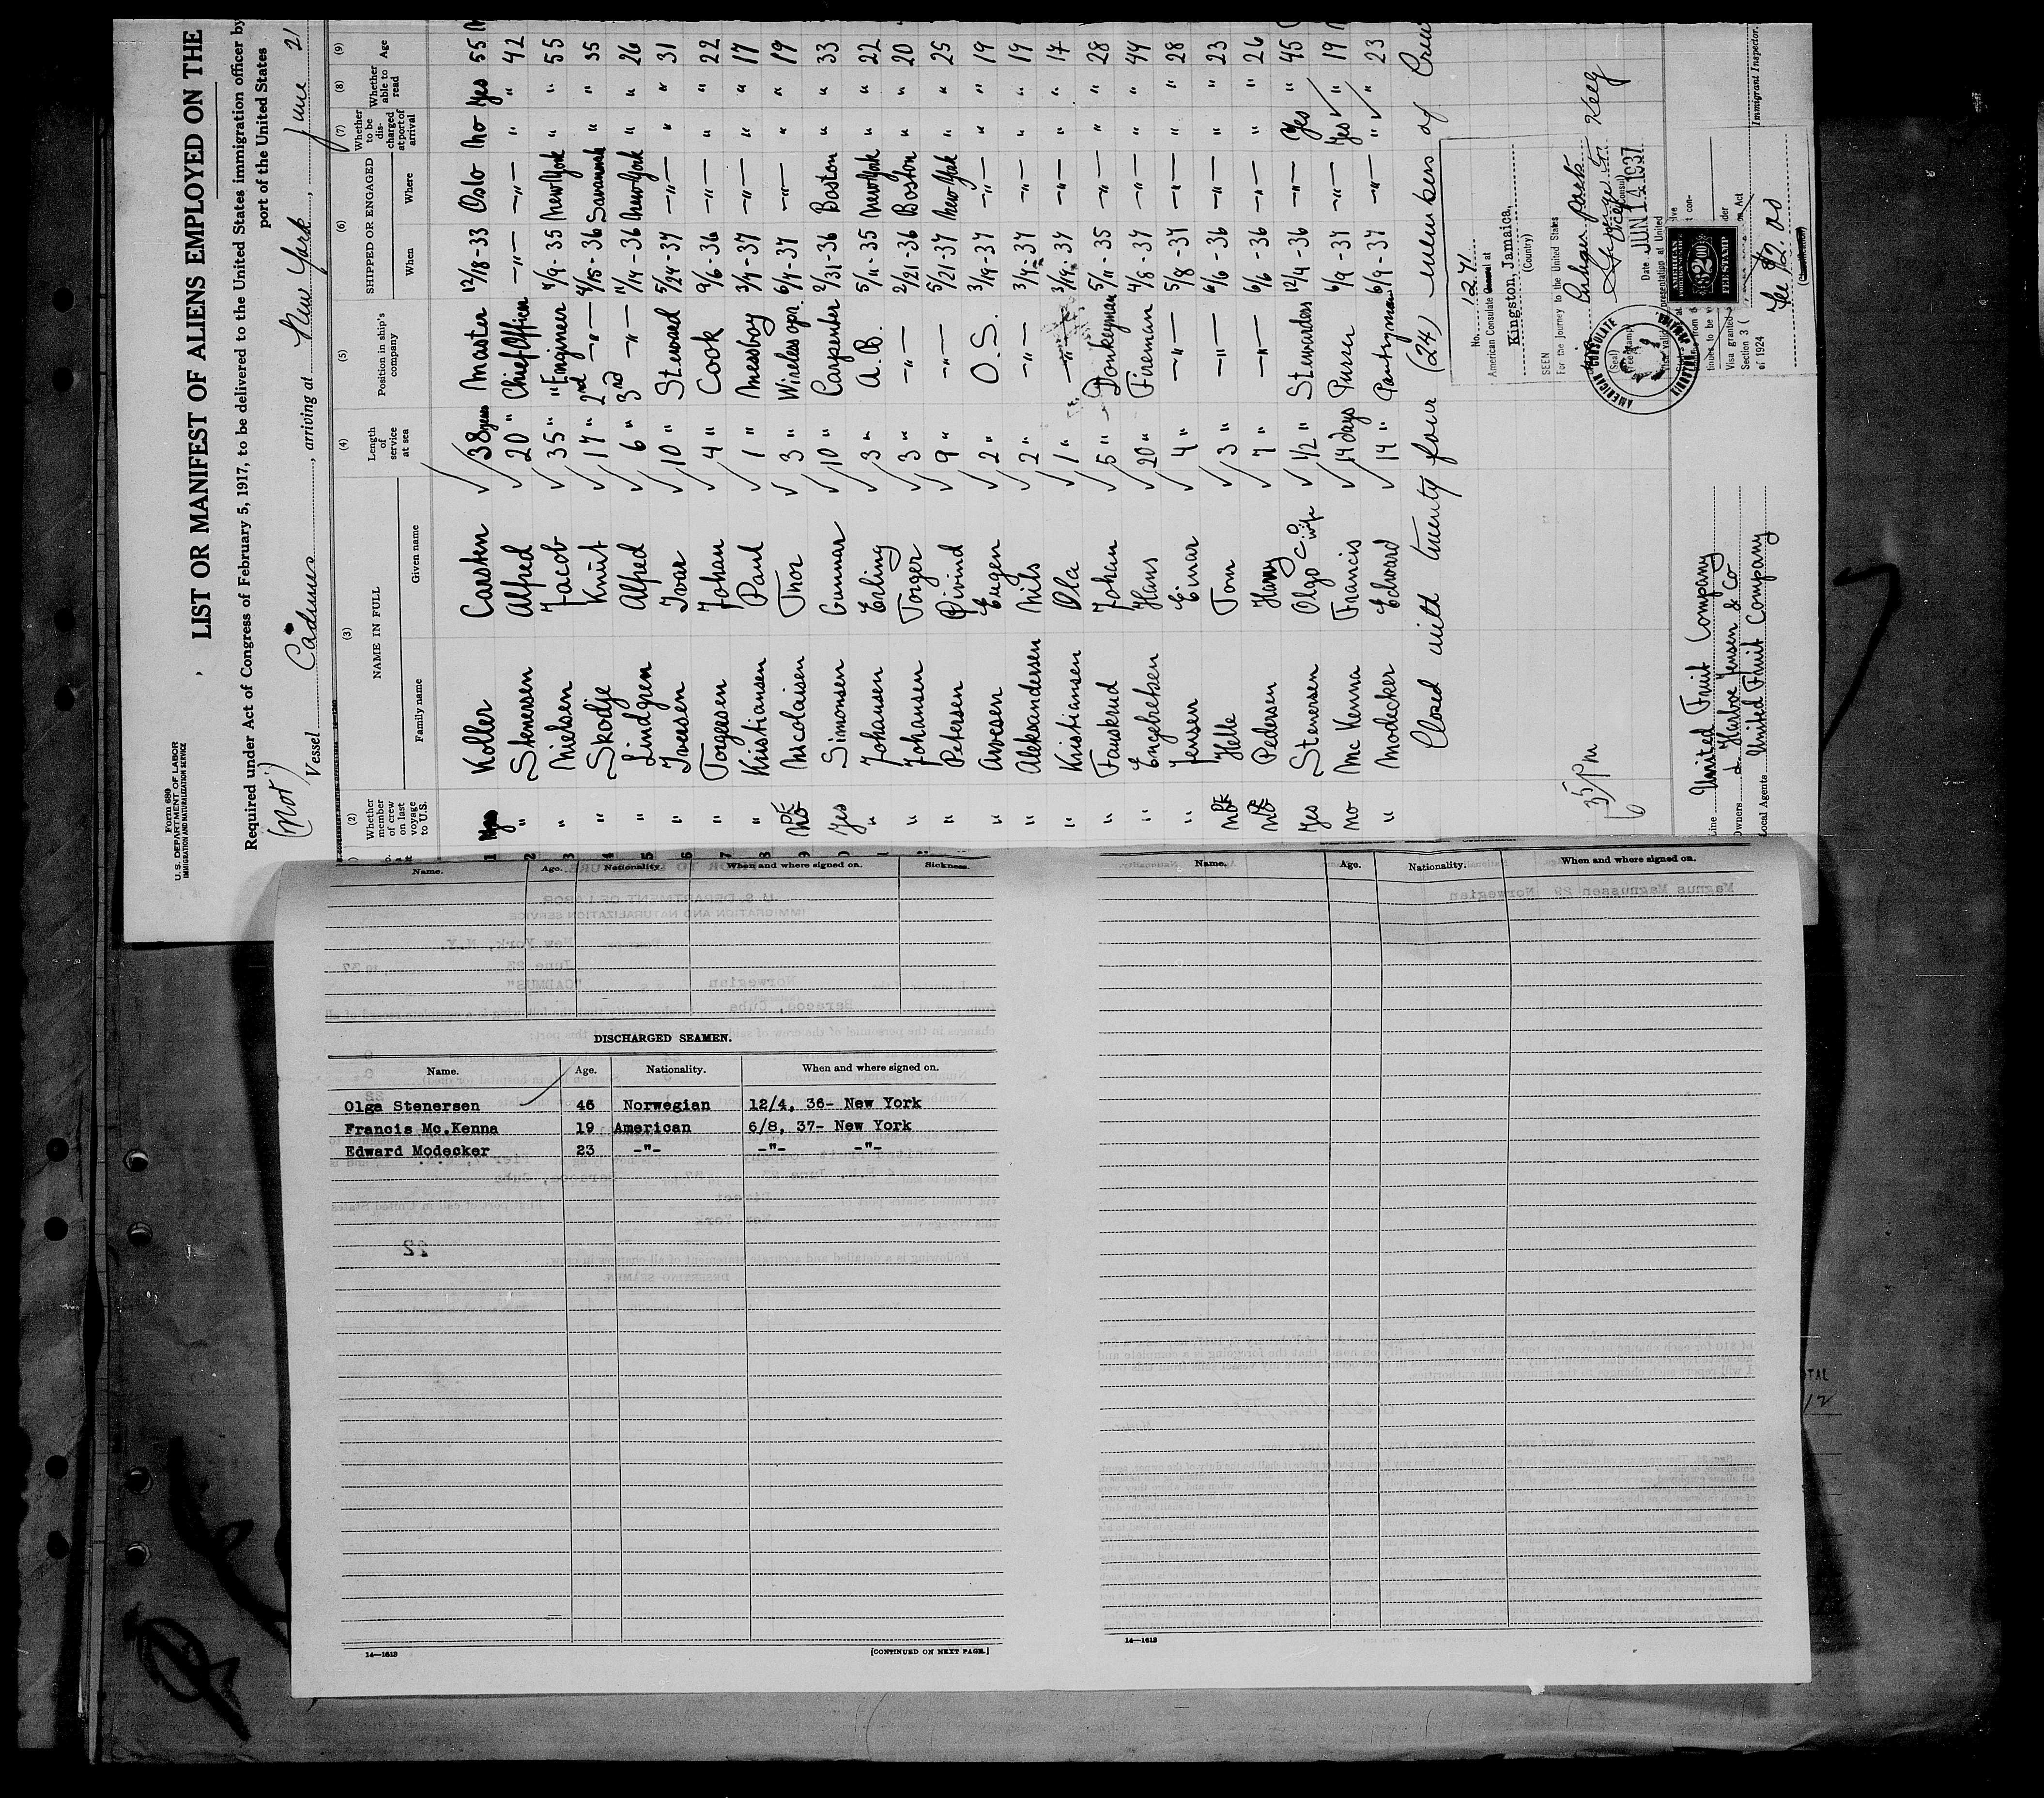 Form 680
U. S. DEPARTMENT OF LABOR
IMMIGRATION AND NATURALIZATION SERVICE
LIST OR MANIFEST OF ALIENS EMPLOYED ON THE
Required under Act of Congress of February 5, 1917, to be delivered to the United States immigration officer by
port of the United States
(Mot)
Vessel Cadmus, arriving at New York, June 21
(2) (3) (4) (5) (6) (7) (8) (9)
Whether member of crew on last voyage to U.S. NAME IN FULL Length of service at sea Position in ship's company SHIPPED OR ENGAGED Whether to be discharged at port of arrival Whether able to read Age
Family name Given name When Where
1 Yes Koller Carsten 38 years Master 12/18-33 Oslo No Yes 55
2 " Stenersen Alfred 20 " Chief Officer -"- -"- " " 42
3 " Nielsen Jacob 35 " " Engineer 4/9-35 New York " " 55
4 " Skodje Knut 17 " 2nd -"- 4/15-36 Savannah " " 35
5 " Lindgren Alfred 6 " 3rd -"- 11/14-36 New York " " 26
6 " Iversen Ivar 10 " Steward 5/24-37 -"- " " 31
7 " Torgersen Johan 4 " Cook 9/6-36 -"- " " 22
8 " Kristiansen Paul 1 " Messboy 3/9-37 -"- " " 17
9 No Nicolaisen Thor 3 " Wireless opr. 6/7-37 -"- " " 19
Yes Simonsen Gunnar 10 " Carpenter 2/21-36 Boston " " 33
" Johansen Erling 3 " A.B. 5/11-35 New York " " 22
" Johansen Torger 3 " -"- 2/21-36 Boston " " 20
" Petersen Øivind 9 " -"- 5/21-37 New York " " 25
" Arvesen Eugen 2 " O.S. 3/19-37 -"- " " 19
" Aleksandersen Nils 2 " -"- 3/9-37 -"- " " 19
" Kristiansen Ola 1 " -"- 3/19-37 -"- " " 17
" Fauskrud Johan 5 " Donkeyman 5/11-35 -"- " " 28
" Engebretsen Hans 20 " Fireman 4/8-37 -"- " " 49
" Jensen Einar 4 " -"- 5/8-37 -"- " " 28
No Helle Tom 3 " -"- 6/6-36 -"- " " 23
No Pedersen Harry 7 " -"- 6/6-36 -"- " " 26
Yes Stenersen Olga C.O. wife 1/2 " Stewardess 12/4-36 -"- Yes " 45
no Mc Kenna Francis 14 days Purser 6/9-37 -"- Yes " 19
" Modecker Edward 14 " Pantryman 6/9-37 -"- " " 23
Closed with twenty four (24) members of Crew
No. 1271
American Consulate at
Kingston, Jamaica,
(Country)
SEEN
For the journey to the United States
Date JUN 14 1937
AMERICAN CONSULATE
AMERICAN FOREIGN SERVICE
$2.00
FEE STAMP
Visa granted
Section 3 (
of 1924
Fee $2.00
(Classification)
Line United Fruit Company
Owners Harboe Jensen & Co
Local Agents United Fruit Company
Immigrant Inspector.
Name. Age. Nationality. When and where signed on. Sickness.
DISCHARGED SEAMEN.
Name. Age. Nationality. When and where signed on.
Olga Stenersen 46 Norwegian 12/4, 36- New York
Francis Mc.Kenna 19 American 6/8, 37- New York
Edward Modecker 23 -"- -"- -"-
14—1613
[CONTINUED ON NEXT PAGE.]
Name. Age. Nationality. When and where signed on.
14—1613